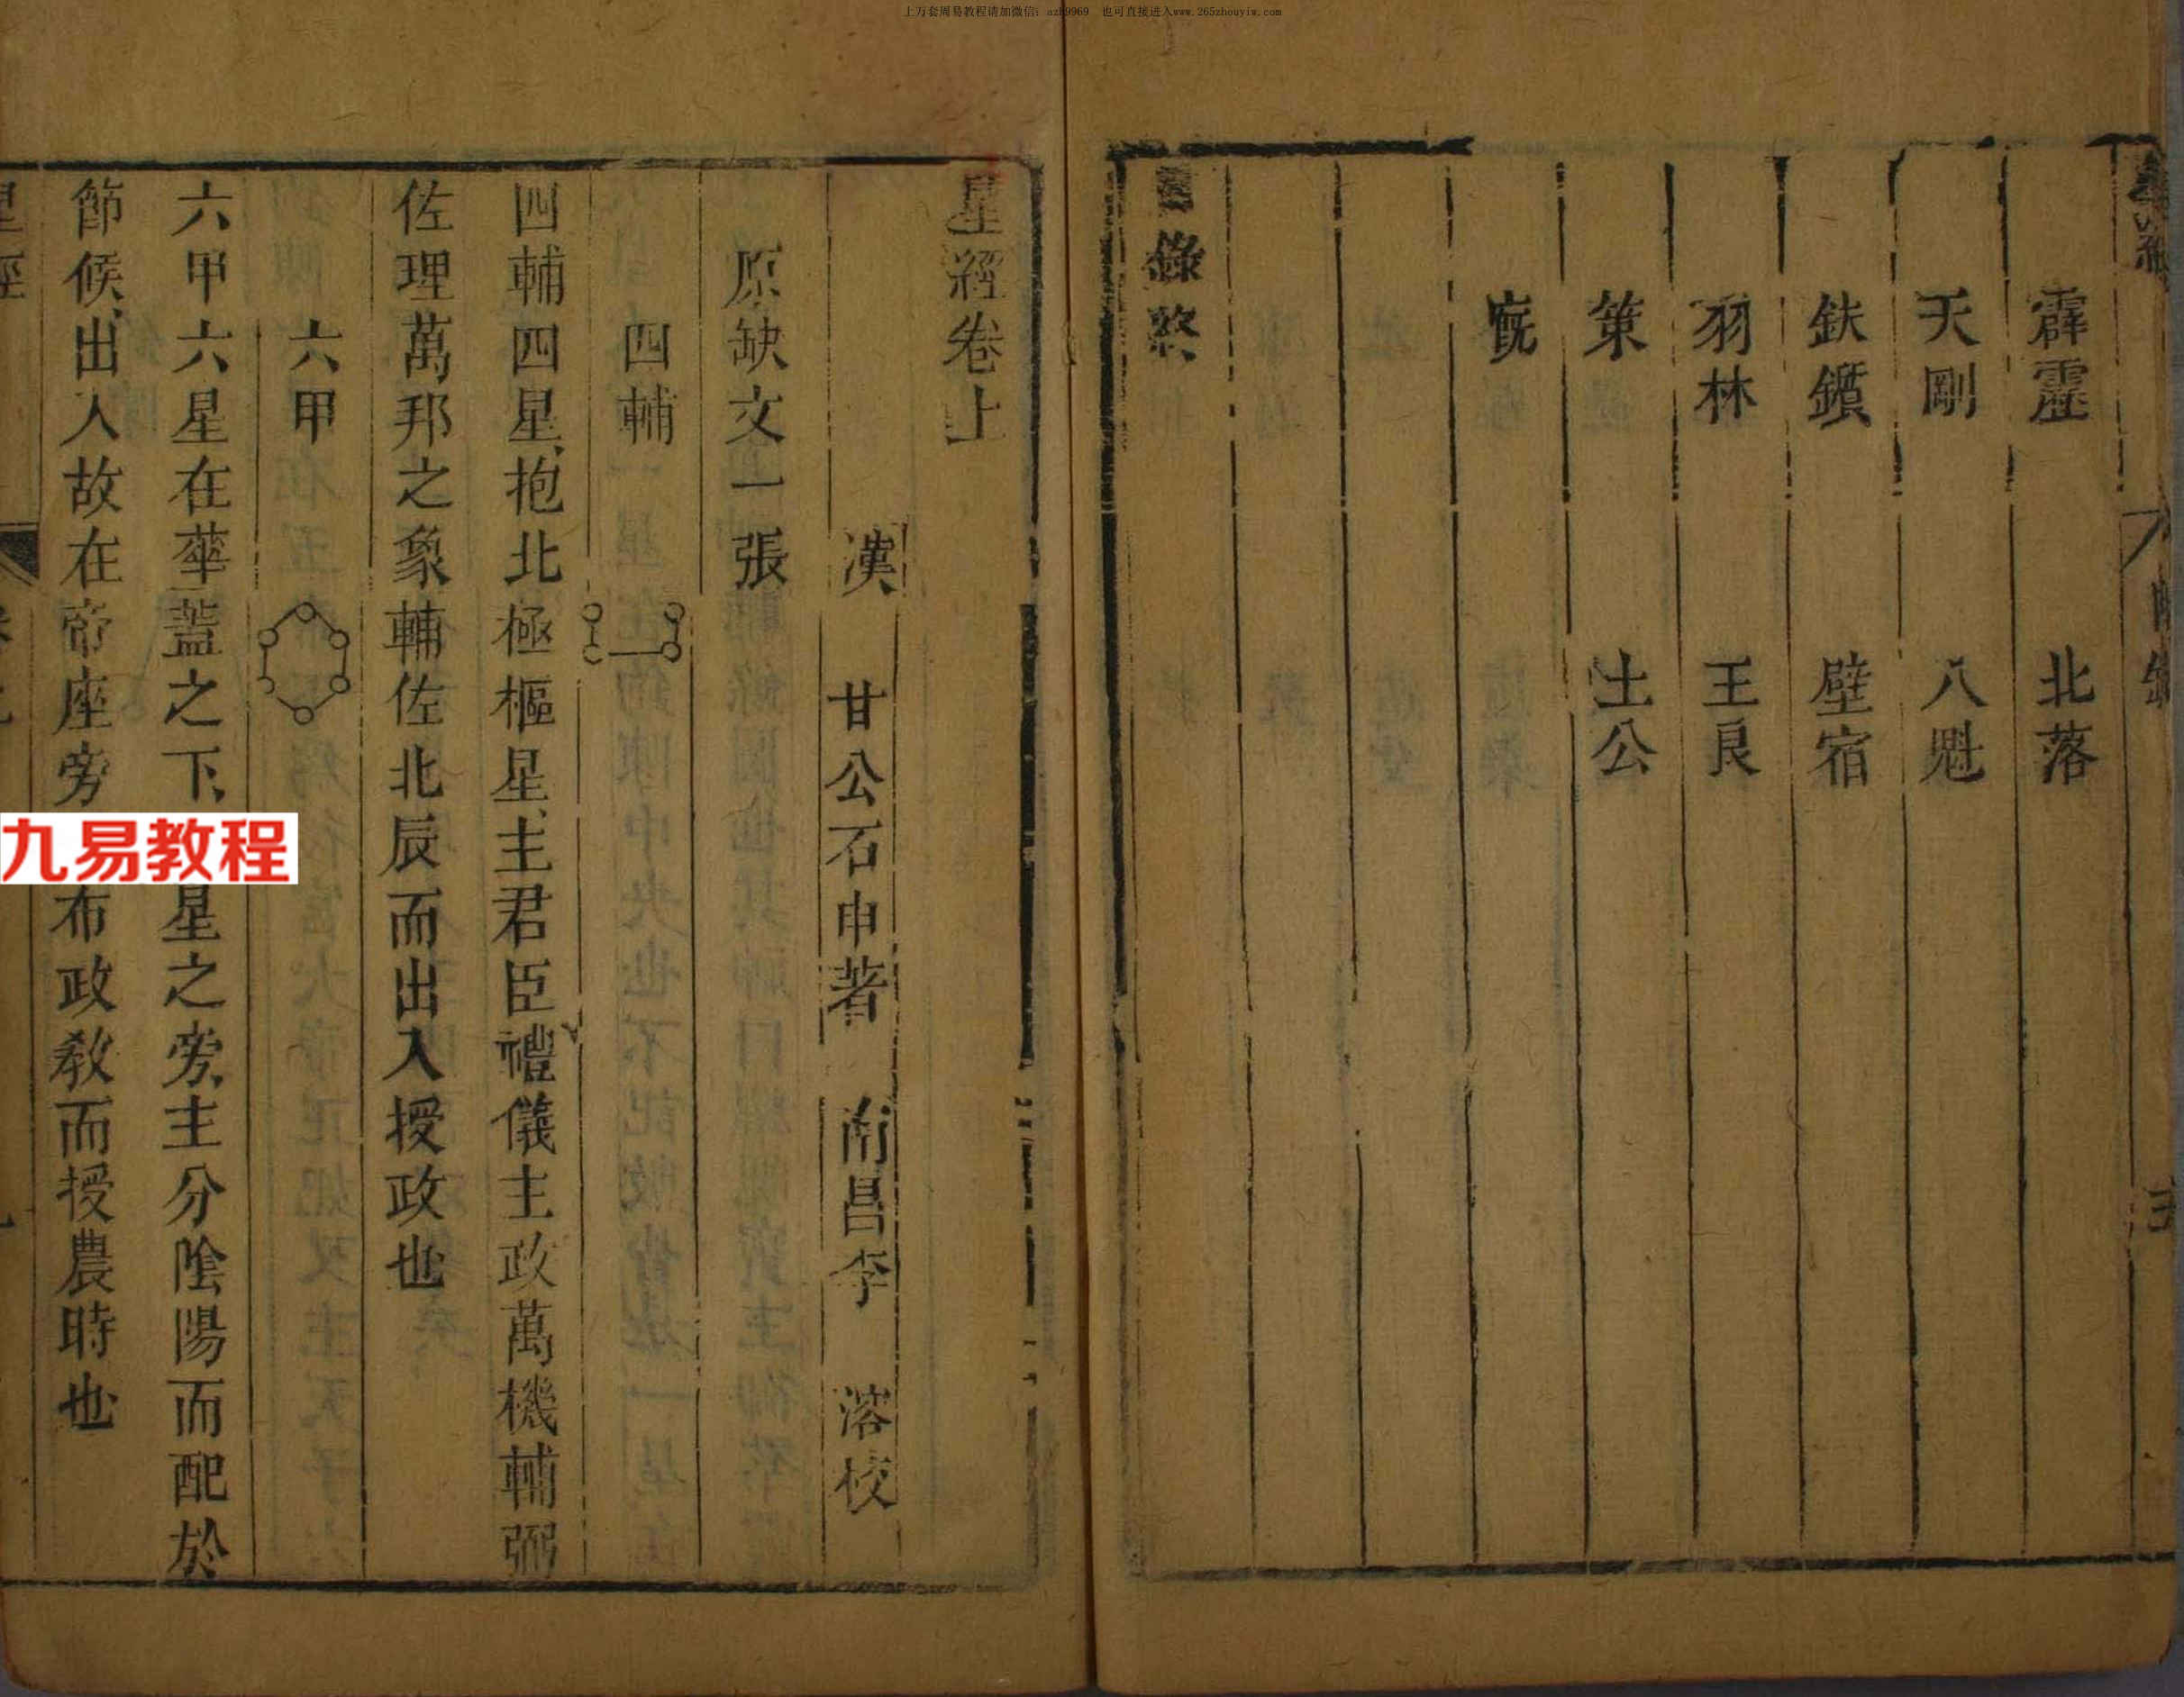 上万套周易教程请加微信：azh9969　也可直接进入www.265zhouyiw.com
星經
霹靂　北落
天剛　八魁
鈇鑕　壁宿
羽林　王良
策　土公
廐
目錄終
星經卷上
漢　甘公石申著　南昌李　溶校
原缺文一張
四輔
四輔四星抱北極樞星主君臣禮儀主政萬機輔弼
佐理萬邦之象輔佐北辰而出入授政也
六甲
六甲六星在華蓋之下星之旁主分陰陽而配於
節候出入故在帝座旁布政教而授農時也
星經
九易教程